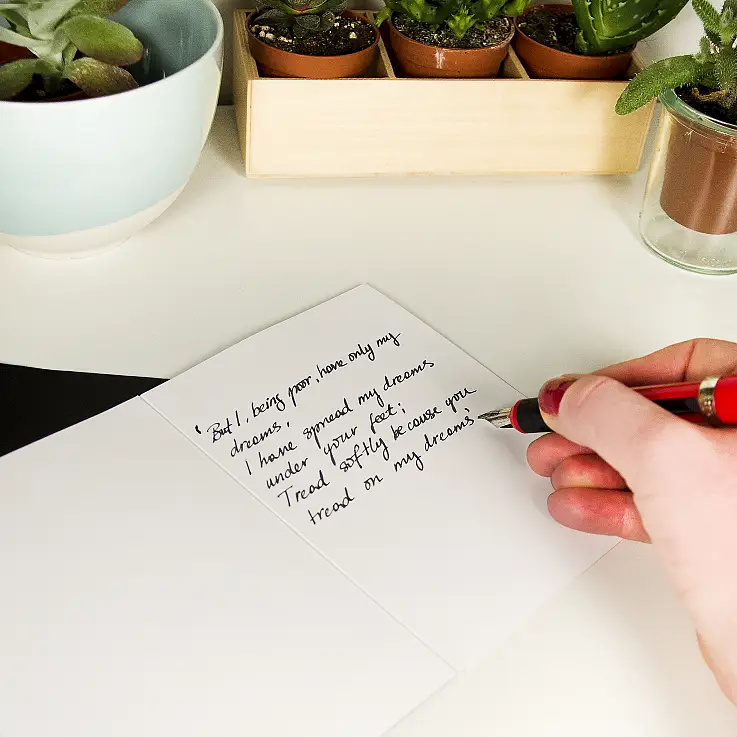 'But I, being poor, have only my
dreams,
I have spread my dreams
under your feet;
Tread softly because you
tread on my dreams'